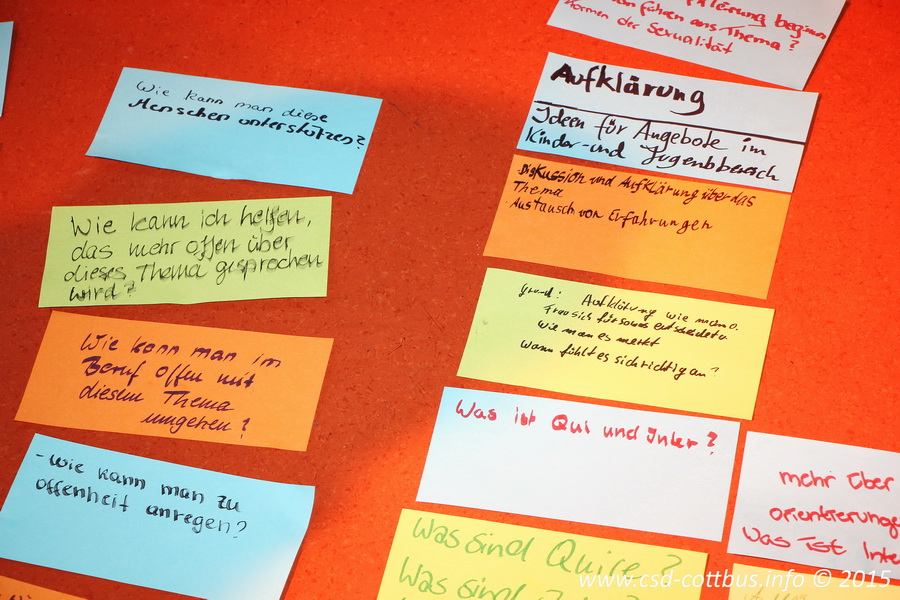 Wie kann man diese
Menschen unterstützen?
Wie kann ich helfen,
das mehr offen über
dieses Thema gesprochen
wird?
Wie kann man im
Beruf offen mit
diesem Thema
umgehen?
- Wie kann man zu
offenheit anregen?
führen ans Thema?
Formen der Sexualität
Aufklärung
Ideen für Angebote im
Kinder- und Jugendbereich
Diskussion und Aufklärung über das
Thema
Austausch von Erfahrungen
Grund: Aufklärung wie man o.
Frau sich für sowas entscheidet u.
wie man es merkt
wann fühlt es sich richtig an?
Was ist Qui und Inter?
mehr über
orientierunge
Was ist Inte
Was sind Quire?
Was sind
www.csd-cottbus.info © 2015